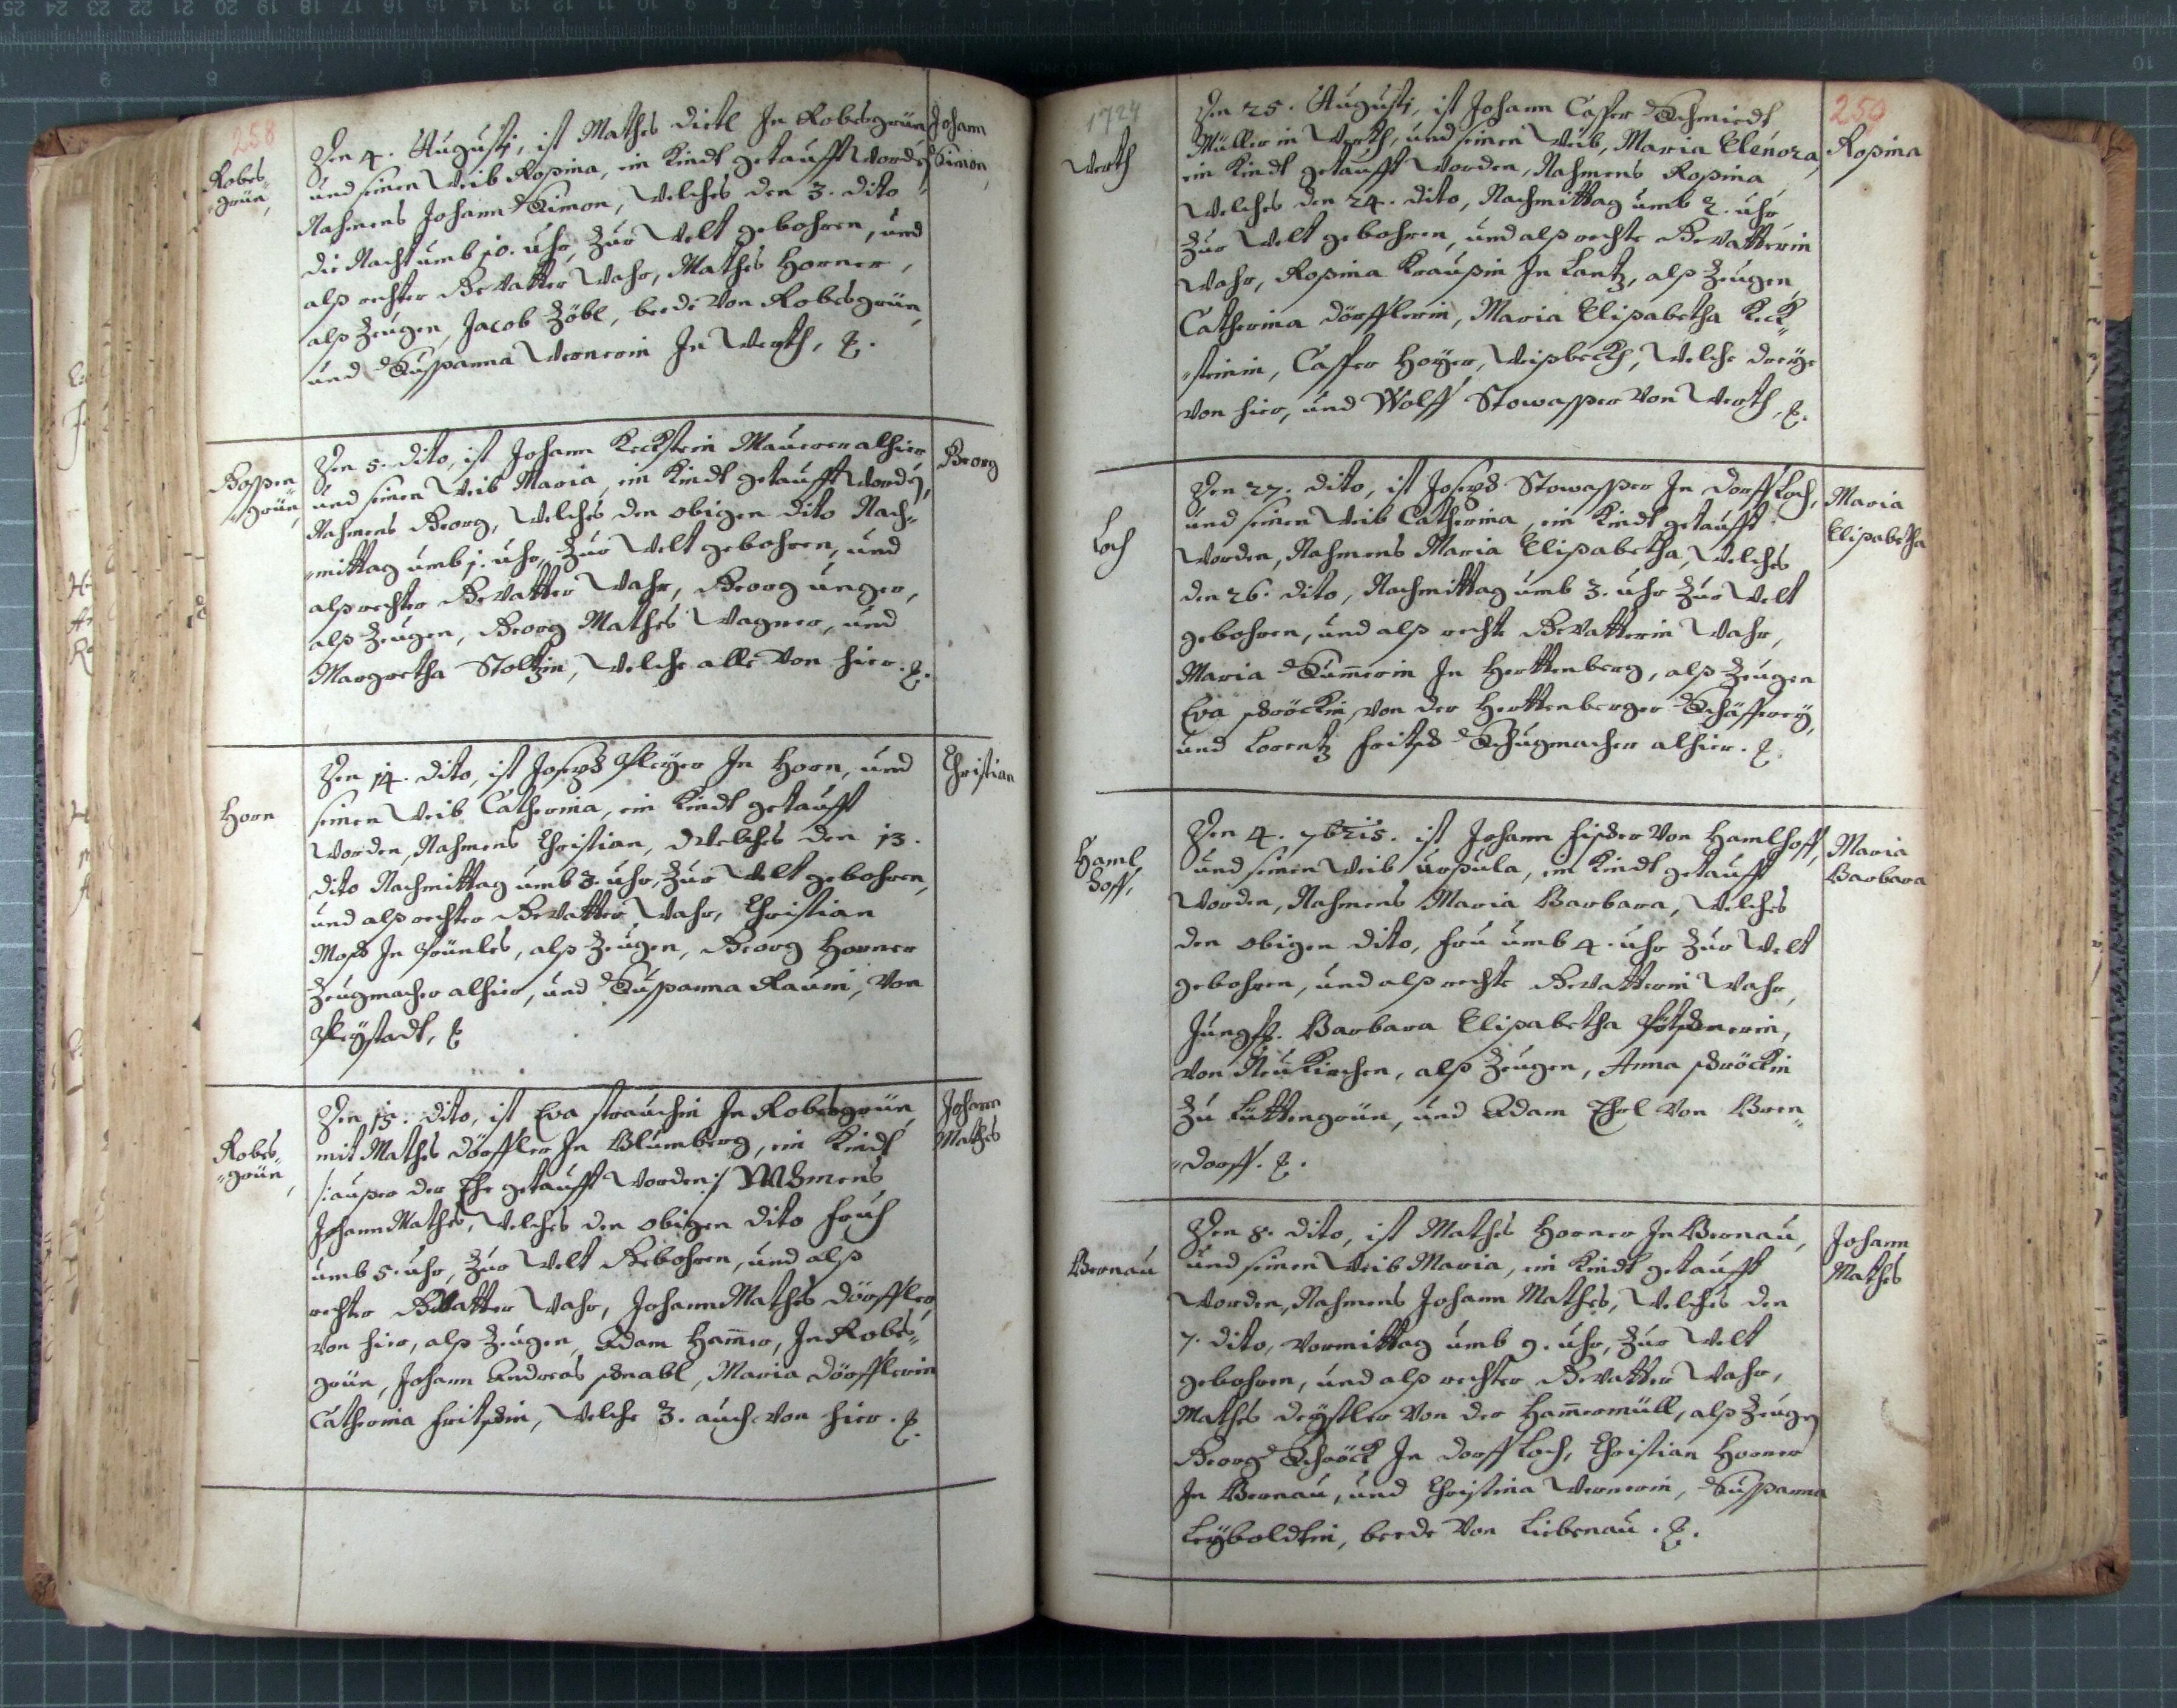 258
Robes„
„grün,
Den 4. Augusti, ist Mathes Dietl In Robesgrün
und seinen Weib Rosina, ein Kindt getaufft Worden,
Nahmens Johann Simon, Welches den 3. dito
die Nacht umb 10. uhr, Zur Welt gebohren, und
alß rechter Gevatter Wahr, Mathes Horner,
alß Zeugen, Jacob Zöbl, beede Von Robesgrün,
und Sussanna Wernerin In Werth, &.
Johann
Simon,
Gossen
„grün,
Den 5. dito, ist Johann Keckstein Maurer alhier
und seinen Weib Maria, ein Kindt getaufft Worden,
Nahmens Georg, Welches den obigen dito Nach„
„mittag umb 1. uhr, Zur Welt gebohren, und
alß rechter Gevatter Wahr, Georg Unger,
alß Zeugen, Georg Mathes Wagner, und
Margretha Stoltzin, Welche alle Von hier. &.
Georg
Horn
Den 14. dito, ist Joseph Pleyer In Horn, und
seinen Weib Catherina, ein Kindt getaufft
Worden, Nahmens Christian, Welches den 13.
dito Nachmittag umb 3. uhr, Zur Welt gebohren,
und alß rechter Gevatter Wahr, Christian
In Prünles, alß Zeugen, Georg Horner
Zeugmacher alhier, und Sussanna Raumi, Von
Pleystadt, &
Christian
Robes„
„grün,
Den 15. dito, ist Eva Strauchin In Robesgrün,
mit Mathes Dörffler In Blumberg, ein Kindt
/:ausser der Ehe getaufft Worden:/ Nahmens
Johann Mathes, Welches den obigen dito fruh
umb 5. uhr, Zur Welt Gebohren, und alß
rechter Gevatter Wahr, Johann Mathes Dörffler
Von hier, alß Zeugen, Adam Ham̅er, In Robes„
grün, Johann Andreas Schnabl, Maria Dörfflerin
Catherina Fritschin, Welche 3. auch Von hier. &.
Johann
Mathes
1724
259
Werth
Den 25. Augusti, ist Johann Casper Schmiedt
Müller in Werth, und seinen Weib, Maria Elenora,
ein Kindt getaufft Worden, Nahmens Rosina,
Welches den 24. dito, Nachmittag umb 2. uhr,
Zur Welt gebohren, und alß rechte Gevatterin
Wahr, Rosina Kraußin In Lantz, alß Zeugen,
Catherina Dörfflerin, Maria Elisabetha Keck„
„steinin, Casper Hoyer, Weißbeckh, Welche dreye
Von hier, und Wolff Stowasser Von Werth, &.
Rosina
Loch
Den 27. dito, ist Joseph Stowasser In Dorff Loch,
und seinen Weib Catherina, ein Kindt getaufft
Worden, Nahmens Maria Elisabetha, Welches
den 26. dito, Nachmittag umb 3. uhr Zur Welt
gebohren, und alß rechte Gevatterin Wahr,
Maria Sum̅erin In Herttenberg, alß Zeugen
Eva Schröckin, Von der Herttenberger Schäfferey,
und Lorentz Fritsch Zeugmacher alhier. &.
Maria
Elisabetha
Haml
hoff,
Den 4. 7bris. ist Johann Fischer Von Hamlhoff,
und seinen Weib Ursula, ein Kindt getaufft
Worden, Nahmens Maria Barbara, Welches
den obigen dito, fru umb 4. uhr Zur Welt
gebohren, und alß rechte Gevatterin Wahr,
Jungf. Barbara Elisabetha
Von Neukirchen, alß Zeugen, Anna Schröckin
Zu Littengrün, und Adam Ehrl Von Bern„
„dorff. &.
Maria
Barbara
Bernau
Den 8. dito, ist Mathes Horner In Bernau,
und seinen Weib Maria, ein Kindt getaufft
Worden, Nahmens Johann Mathes, Welches den
7. dito, Vormittag umb 9. uhr, Zur Welt
gebohren, und alß rechter Gevatter Wahr,
Mathes Deystler Von der Ham̅ermüll, alß Zeugen
Georg Schröck In Dorff Loch, Christian Horner
In Bernau, und Christina Wernerin, Sussanna
Leyboldtin, beede Von Liebenau. &.
Johann
Mathes